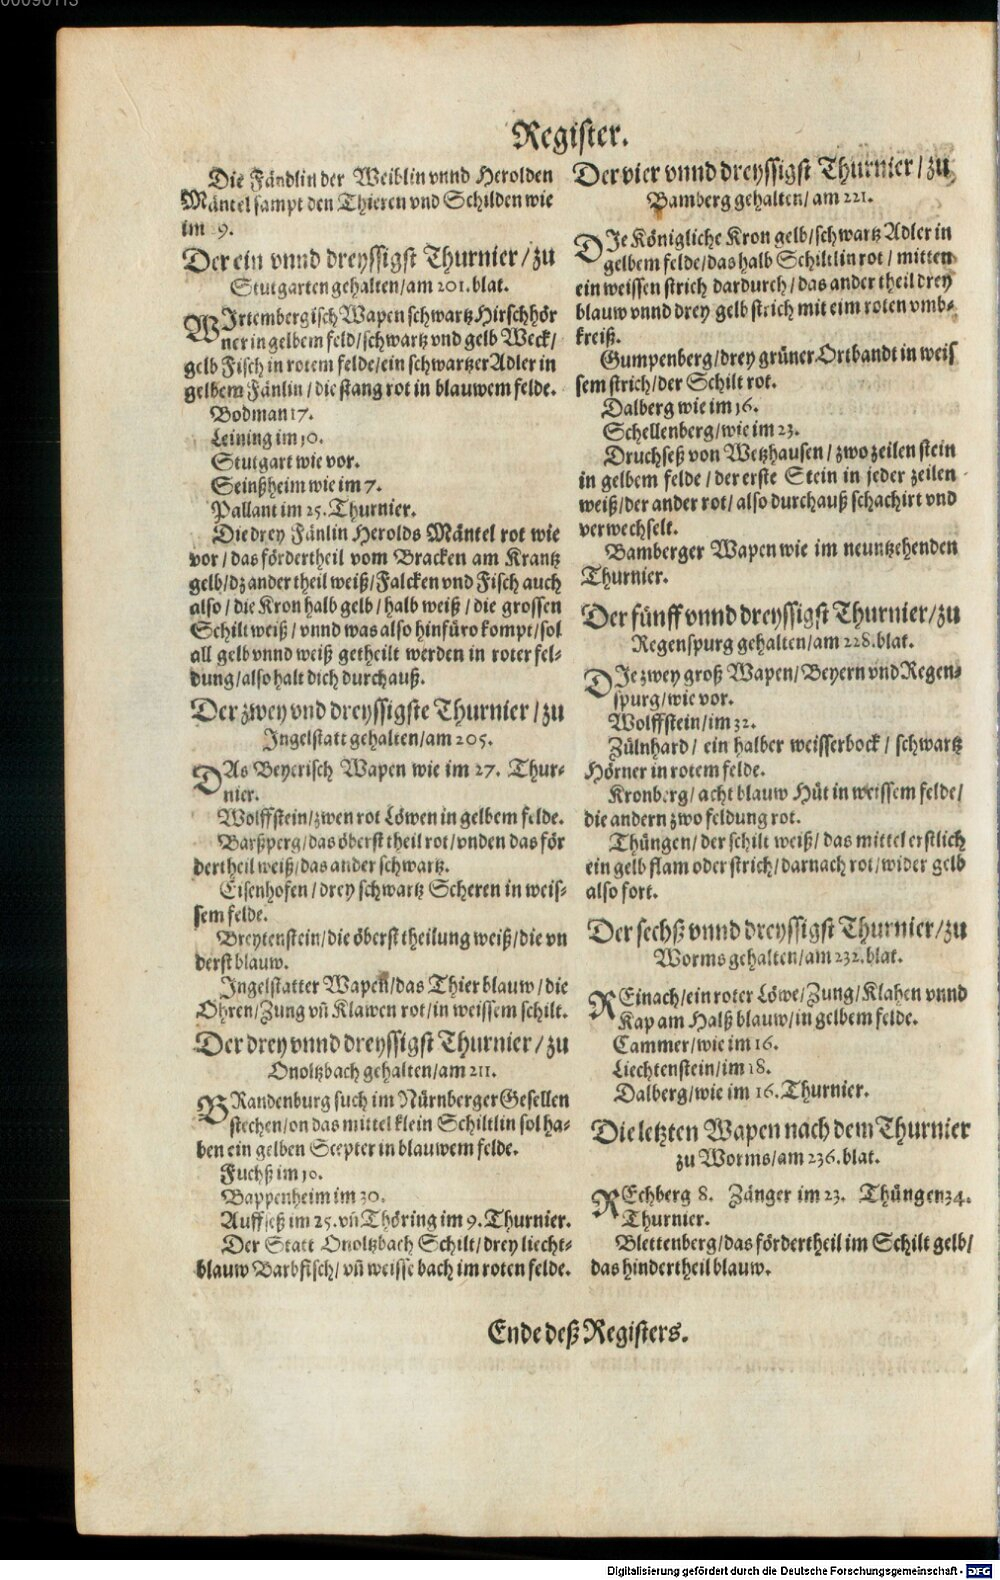 Register.
Die Fändlin der Weiblin vnnd Herolden
Mäntel sampt den Thieren vnd Schilden wie
im 9.
Der ein vnnd dreyssigst Thurnier / zu
Stutgarten gehalten / am 201. blat.
WIrtembergisch Wapen schwartz Hirschhör
ner in gelbem feld / schwartz vnd gelb Weck /
gelb Fisch in rotem felde / ein schwartzer Adler in
gelbem Fänlin / die stang rot in blauwem felde.
Bodman 17.
Leining im 10.
Stutgart wie vor.
Seinßheim wie im 7.
Pallant im 25. Thurnier.
Die drey Fänlin Herolds Mäntel rot wie
vor / das fördertheil vom Bracken am Krantz
gelb / dz ander theil weiß / Falcken vnd Fisch auch
also / die Kron halb gelb / halb weiß / die grossen
Schilt weiß / vnnd was also hinfüro kompt / sol
all gelb vnnd weiß getheilt werden in roter fel-
dung / also halt dich durchauß.
Der zwey vnd dreyssigste Thurnier / zu
Ingelstatt gehalten / am 205.
DAs Beyerisch Wapen wie im 27. Thur-
nier.
Wolffstein / zwen rot Löwen in gelbem felde.
Barßperg / das öberst theil rot / vnden das för
dertheil weiß / das ander schwartz.
Eisenhofen / drey schwartz Scheren in weis-
sem felde.
Breytenstein / die öberst theilung weiß / die vn
derst blauw.
Ingelstatter Wapen / das Thier blauw / die
Ohren / Zung vñ Klawen rot / in weissem schilt.
Der drey vnnd dreyssigst Thurnier / zu
Onoltzbach gehalten / am 211.
BRandenburg such im Nürnberger Gesellen
stechen / on das mittel klein Schiltlin sol ha-
ben ein gelben Scepter in blauwem felde.
Fuchß im 10.
Bappenheim im 30.
Auffseß im 25. vñ Thöring im 9. Thurnier.
Der Statt Onoltzbach Schilt / drey liecht-
blauw Barbfisch / vñ weisse bach im roten felde.
Der vier vnnd dreyssigst Thurnier / zu
Bamberg gehalten / am 221.
DIe Königliche Kron gelb / schwartz Adler in
gelbem felde / das halb Schiltlin rot / mitten
ein weissen strich dardurch / das ander theil drey
blauw vnnd drey gelb strich mit eim roten vmb-
kreiß.
Gumpenberg / drey grüner Ortbandt in weis
sem strich / der Schilt rot.
Dalberg wie im 16.
Schellenberg / wie im 23.
Druchseß von Wetzhausen / zwo zeilen stein
in gelbem felde / der erste Stein in jeder zeilen
weiß / der ander rot / also durchauß schachirt vnd
verwechselt.
Bamberger Wapen wie im neuntzehenden
Thurnier.
Der fünff vnnd dreyssigst Thurnier / zu
Regenspurg gehalten / am 228. blat.
DIe zwey groß Wapen / Beyern vnd Regen-
spurg / wie vor.
Wolffstein / im 32.
Zülnhard / ein halber weisser bock / schwartz
Hörner in rotem felde.
Kronberg / acht blauw Hüt in weissem felde /
die andern zwo feldung rot.
Thüngen / der schilt weiß / das mittel erstlich
ein gelb flam oder strich / darnach rot / wider gelb
also fort.
Der sechß vnnd dreyssigst Thurnier / zu
Worms gehalten / am 232. blat.
REinach / ein roter Löwe / Zung / Klahen vnnd
Kap am Halß blauw / in gelbem felde.
Cammer / wie im 16.
Liechtenstein / im 18.
Dalberg / wie im 16. Thurnier.
Die letzten Wapen nach dem Thurnier
zu Worms / am 236. blat.
REchberg 8. Zänger im 23. Thüngen 34.
Thurnier.
Blettenberg / das fördertheil im Schilt gelb /
das hindertheil blauw.
Ende deß Registers.
Digitalisierung gefördert durch die Deutsche Forschungsgemeinschaft - DFG